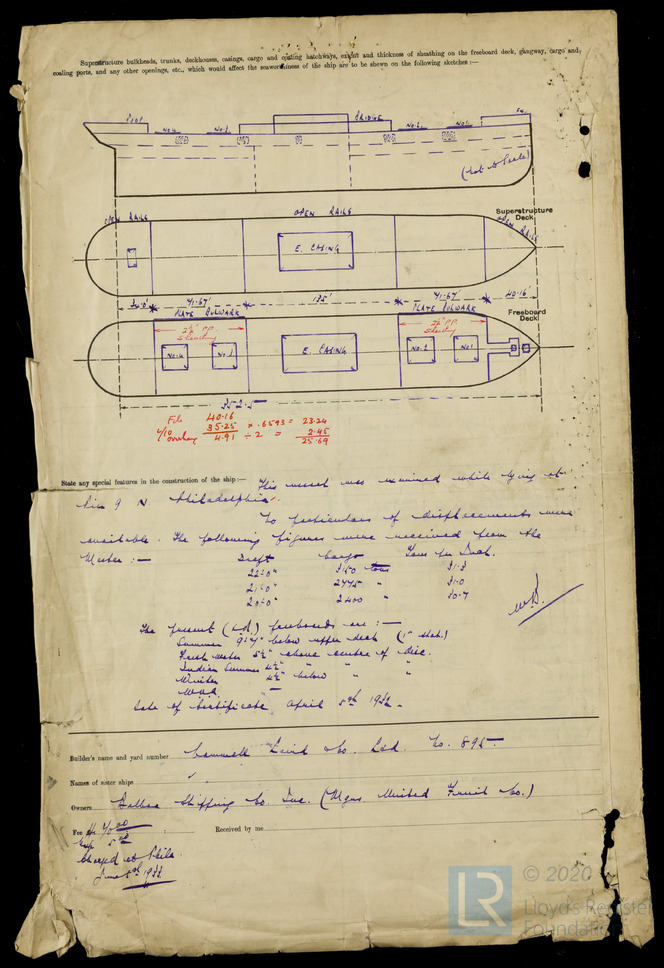 Superstructure bulkheads, trunks, deckhouses, casings, cargo and coaling hatchways, extent and thickness of sheathing on the freeboard deck, gangway, cargo and
coaling ports, and any other openings, etc., which would affect the seaworthiness of the ship are to be shewn on the following sketches :—
POOP
BRIDGE
No.4
No.3
No.2
No.1
(Not to Scale)
Superstructure
Deck
OPEN RAILS
OPEN RAILS
OPEN RAILS
E. CASING
41.67'
135'
41.67'
40.16'
PLATE BULWARK
PLATE BULWARK
Freeboard
Deck
2½" P.P.
Sheathing
2½" P.P.
Sheathing
No.4
No.3
E. CASING
No.2
No.1
352.5
40.16
35.25 × .6593 = 23.24
4.91 ÷ 2 = 2.45
25.69
State any special features in the construction of the ship :— This vessel was examined while lying at
Pier 9 N Philadelphia.
No particulars of displacements were
available. The following figures were received from the
Master :— Draft Cargo Tons per Inch.
22'-0"
21'-0"
20'-0" 2400 "
The present freeboards are :—
Summer below upper deck
Fresh Water 5½" above centre of disc.
Indian Summer 4½" " " "
Winter 4½" below " "
Date of Certificate April 5th
Builder's name and yard number Cammell Laird & Co. Ltd. No. 895
Names of sister ships
Owners Balboa Shipping Co. Inc. (Mgrs. United Fruit Co.)
Fee
Received by me
Charged at Phila.
June
LR
© 2020
Lloyd's Register
Foundation